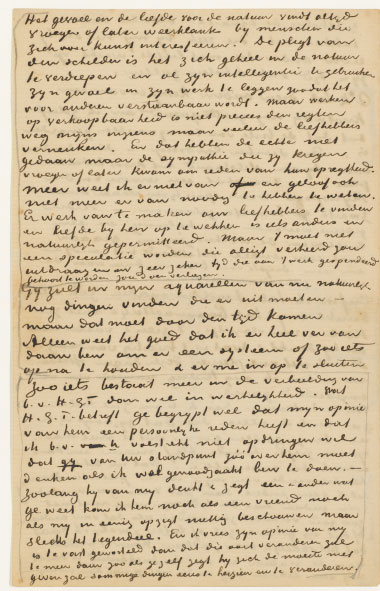 Het gevoel en de liefde voor de natuur vindt altijd
vroeger of later weerklank by menschen die
zich voor kunst interesseeren. De pligt van
den schilder is het zich geheel in de natuur
te verdiepen en al zyn intelligentie te gebruiken
zyn gevoel in zyn werk te leggen zoodat het
voor anderen verstaanbaar wordt. Maar werken
op verkoopbaarheid is niet precies den regten
weg myns inziens maar veeleer de liefhebbers
verneuken. En dat hebben de echte niet
gedaan maar de sympathie die zy kregen
vroeger of later kwam om reden van hun opregtheid.
Meer weet ik er niet van en geloof ook
niet meer er van noodig te hebben te weten.
Er werk van te maken om liefhebbers te vinden
en liefde by hen op te wekken is iets anders en
natuurlyk gepermitteerd. Maar 't moet niet
een speculatie worden die alligt verkeerd zou
uitdraaien en zeer zeker tyd die aan 't werk gespendeerd
behoort te worden zou doen verliezen.
Gy zult in myn aquarellen van nu natuurlyk
nog dingen vinden die er uit moeten —
maar dat moet door den tyd komen
Alleen weet het goed dat ik er heel ver van
daan ben om er een systeem of zoo iets
op na te houden & er me in op te sluiten
Zoo iets bestaat meer in de verbeelding van
b.v. H.G.T. dan wel in werkelykheid. Wat
H.G.T. betreft ge begrypt wel dat myn opinie
van hem een persoonlyke reden heeft en dat
ik b.v. U volstrekt niet opdringen wil
dat gy van uw standpunt zus over hem moet
denken als ik wel genoodzaakt ben te doen. —
Zoolang hy van my denkt & zegt een & ander wat
ge weet kan ik hem noch als een vriend noch
als my in eenig opzigt nuttig beschouwen maar
slechts het tegendeel. En ik vrees zyn opinie van my
is te vast geworteld dan dat die ooit veranderen zal
te meer daar zoo als ge zelf zegt hy zich de moeite niet
geven zal sommige dingen eens te herzien en te veranderen.